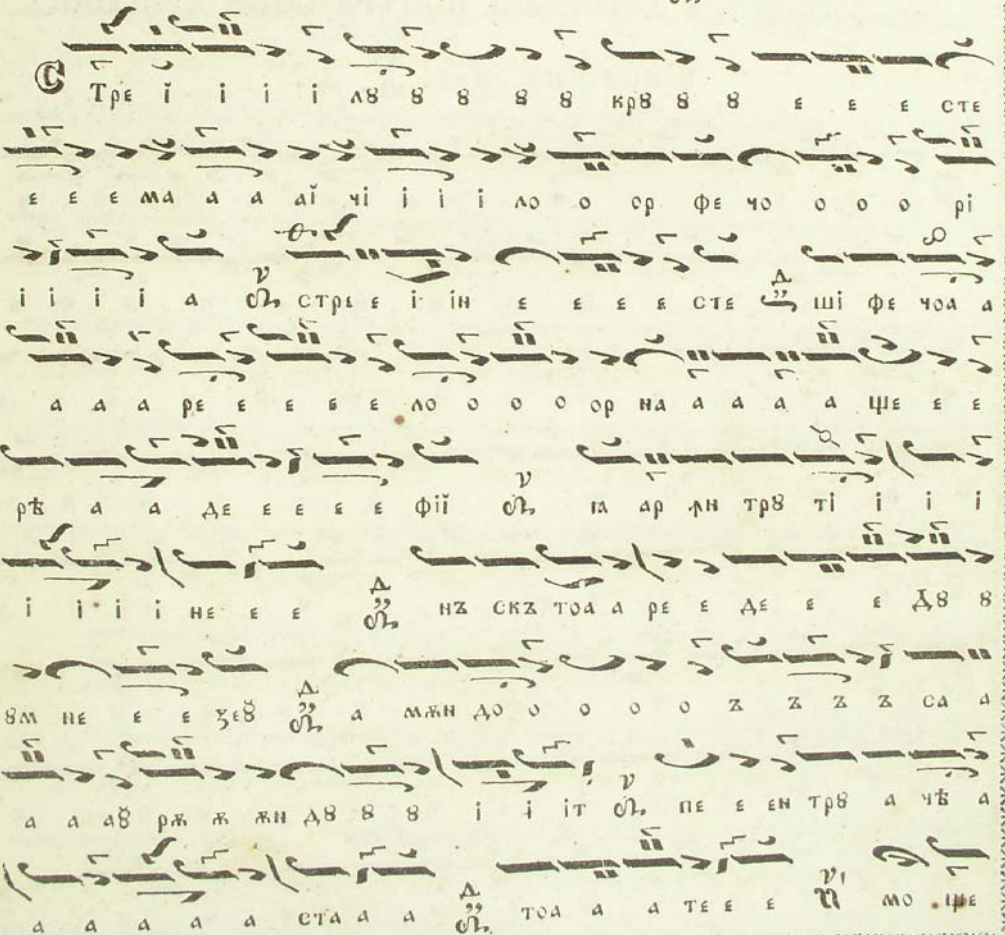 Стре ĭ і і і лȣ ȣ ȣ ȣ ȣ крȣ ȣ ȣ е е е сте
е е е ма а а аĭ чі і і і ло о ор фе чо о о о рі
і і і і а стре е і ін е е е е сте ші фе чоа а
а а а ре е е е е ло о о о ор на а а а а ще е е
рѣ а а де е е е е фіĭ ꙗ ар ꙟн трȣ ті і і і
і і і і не е е нъ скъ тоа а ре е де е е дȣ ȣ
ȣм не е е ꙃеȣ̆ а мѫн до о о о о ъ ъ ъ ъ са а
а а аȣ̆ рѫ ѫ ѫн дȣ ȣ ȣ і і іт пе е ен трȣ а чѣ а
а а а а а ста а а тоа а а те е е мо ще